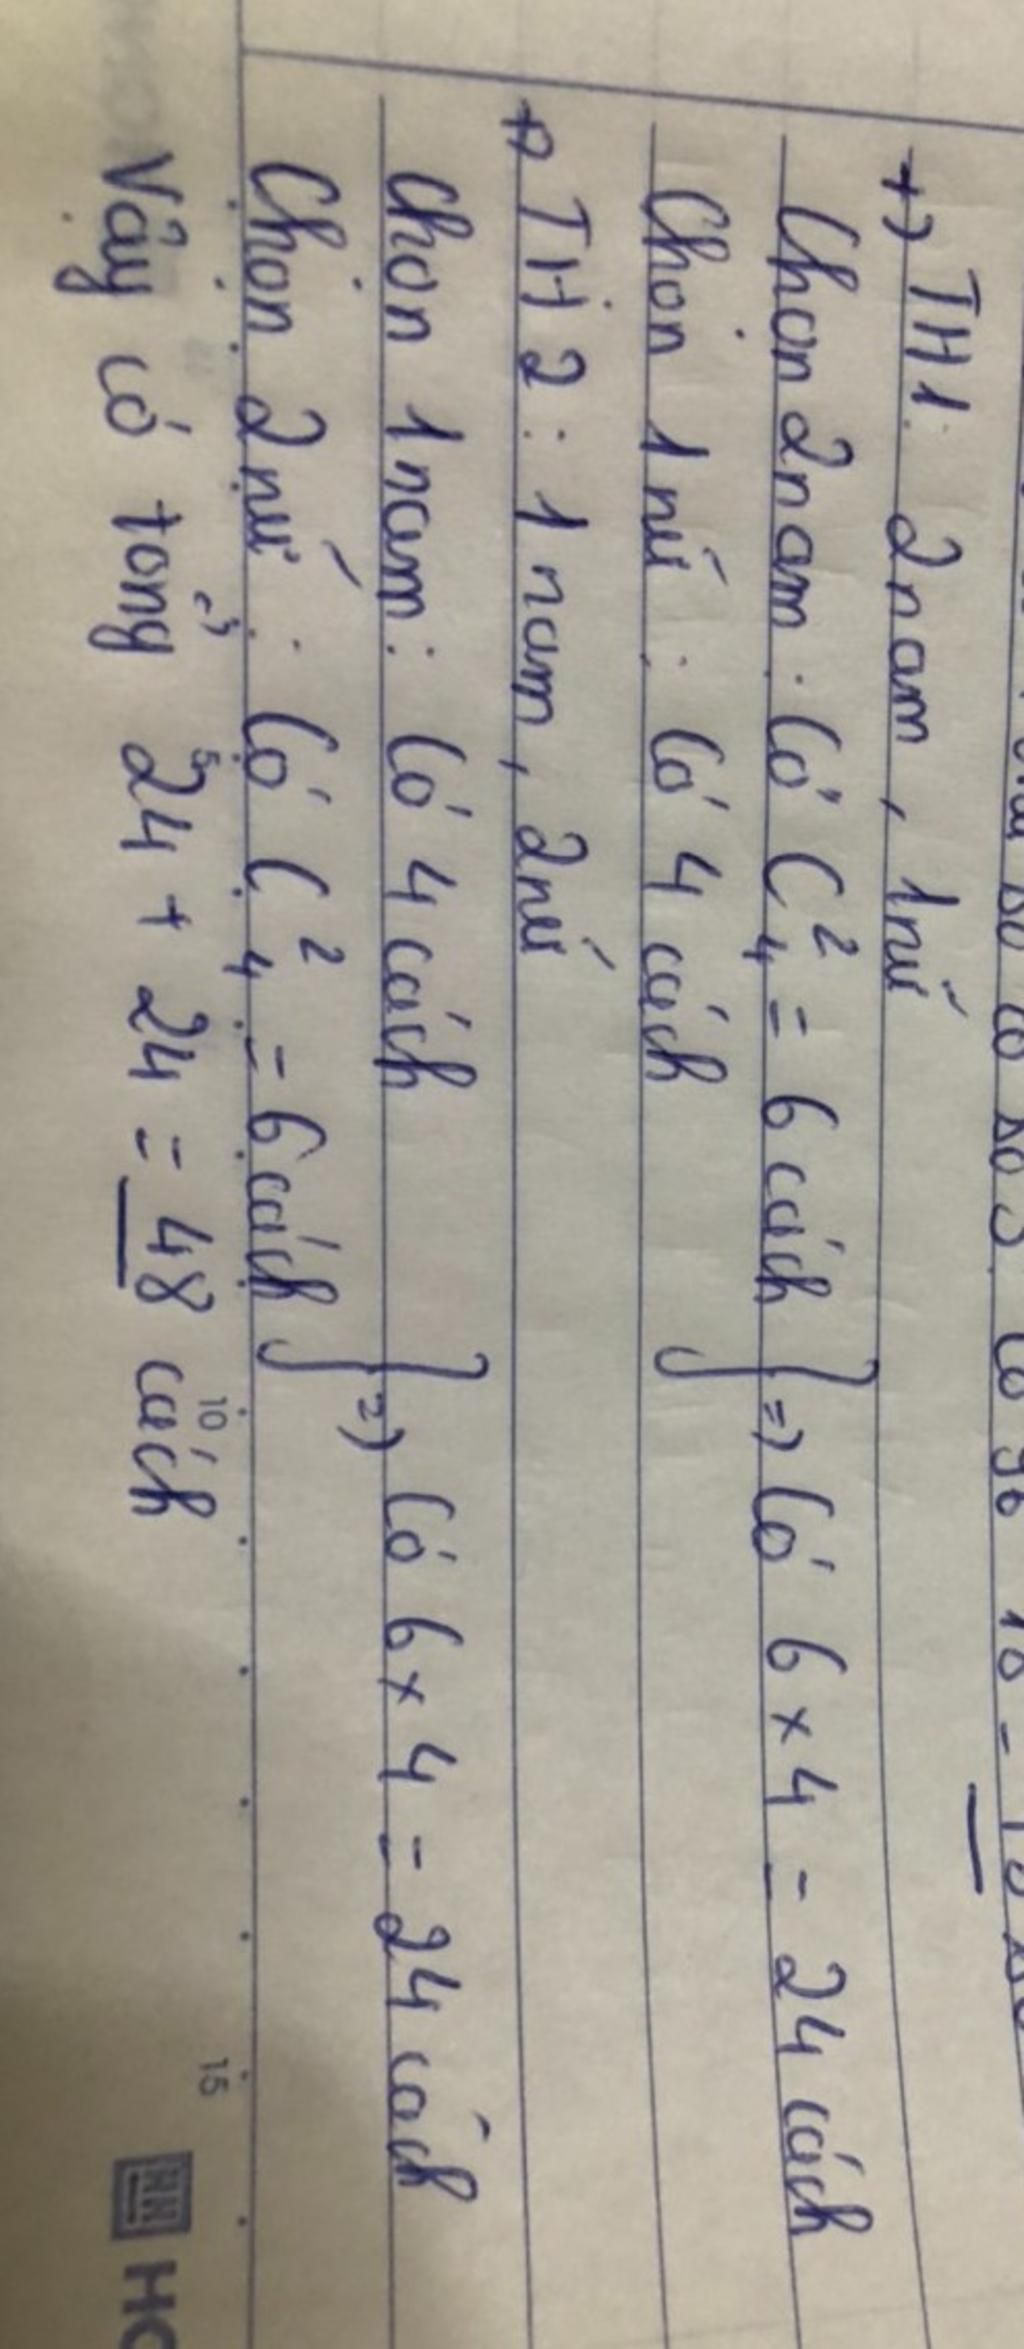 +) TH1: 2 nam, 1 nữ
Chọn 2 nam: Có C²₄ = 6 cách
Chọn 1 nữ: Có 4 cách
} => Có 6 x 4 = 24 cách
+) TH2: 1 nam, 2 nữ
Chọn 1 nam: Có 4 cách
Chọn 2 nữ: Có C²₄ = 6 cách
} => Có 6 x 4 = 24 cách
Vậy có tổng 24 + 24 = 48 cách
5 10 15
HO